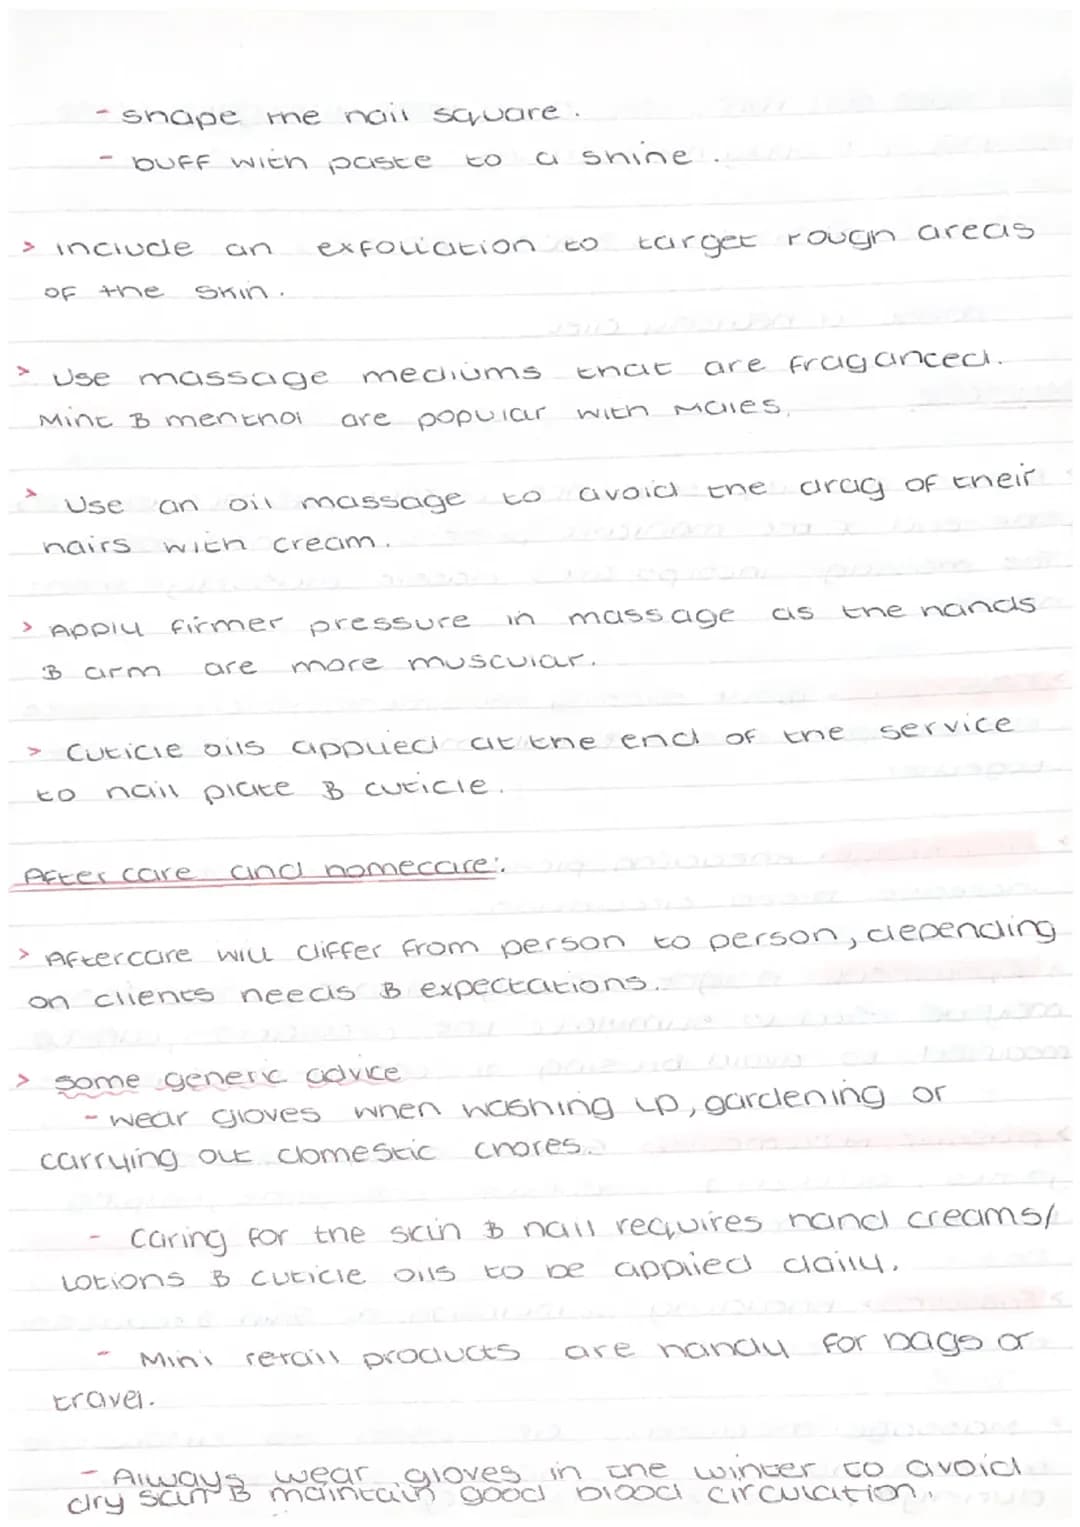 - shape the nail square.
- buff with paste to a shine.
> include an exfoliation to target rough areas
of the skin.
> Use massage mediums that are fraganced.
Mint & menthol are popular with Males.
> Use an oil massage to avoid the drag of their
hairs with cream.
> Apply firmer pressure in massage as the hands
& arm are more muscular.
> Cuticle oils applied at the end of the service
to nail plate & cuticle.
After care and homecare:
> Aftercare will differ from person to person, depending
on clients needs & expectations.
> some generic advice
- wear gloves when washing up, gardening or
carrying out domestic chores.
- Caring for the skin & nail requires hand creams/
lotions & cuticle oils to be applied daily.
- Mini retail products are handy for bags or
travel.
- Always wear gloves in the winter to avoid
dry skin & maintain good blood circulation.